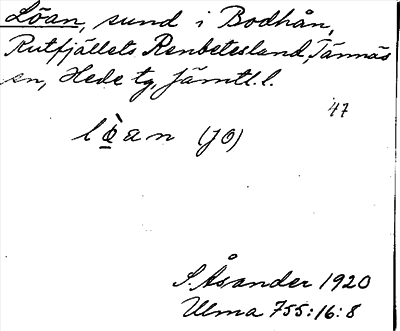 Löan, sund i Bodhån,
Rutfjällets Renbetesland, Tännäs
sn, Hede tg, Jämtl.l.
47
lö̀an (JO)
S. Åsander 1920
Ulma 755:16:8